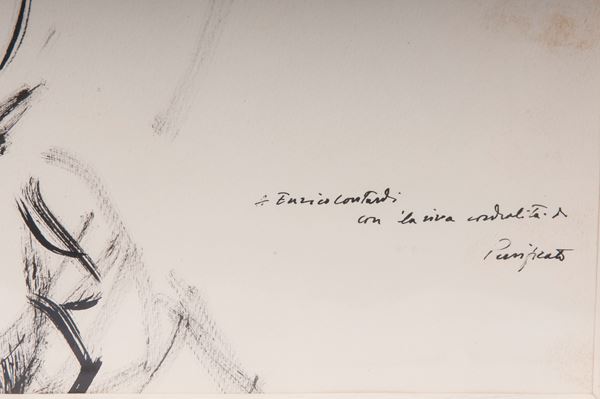 a Enrico Contardi
con la viva cordialità di
Purificato